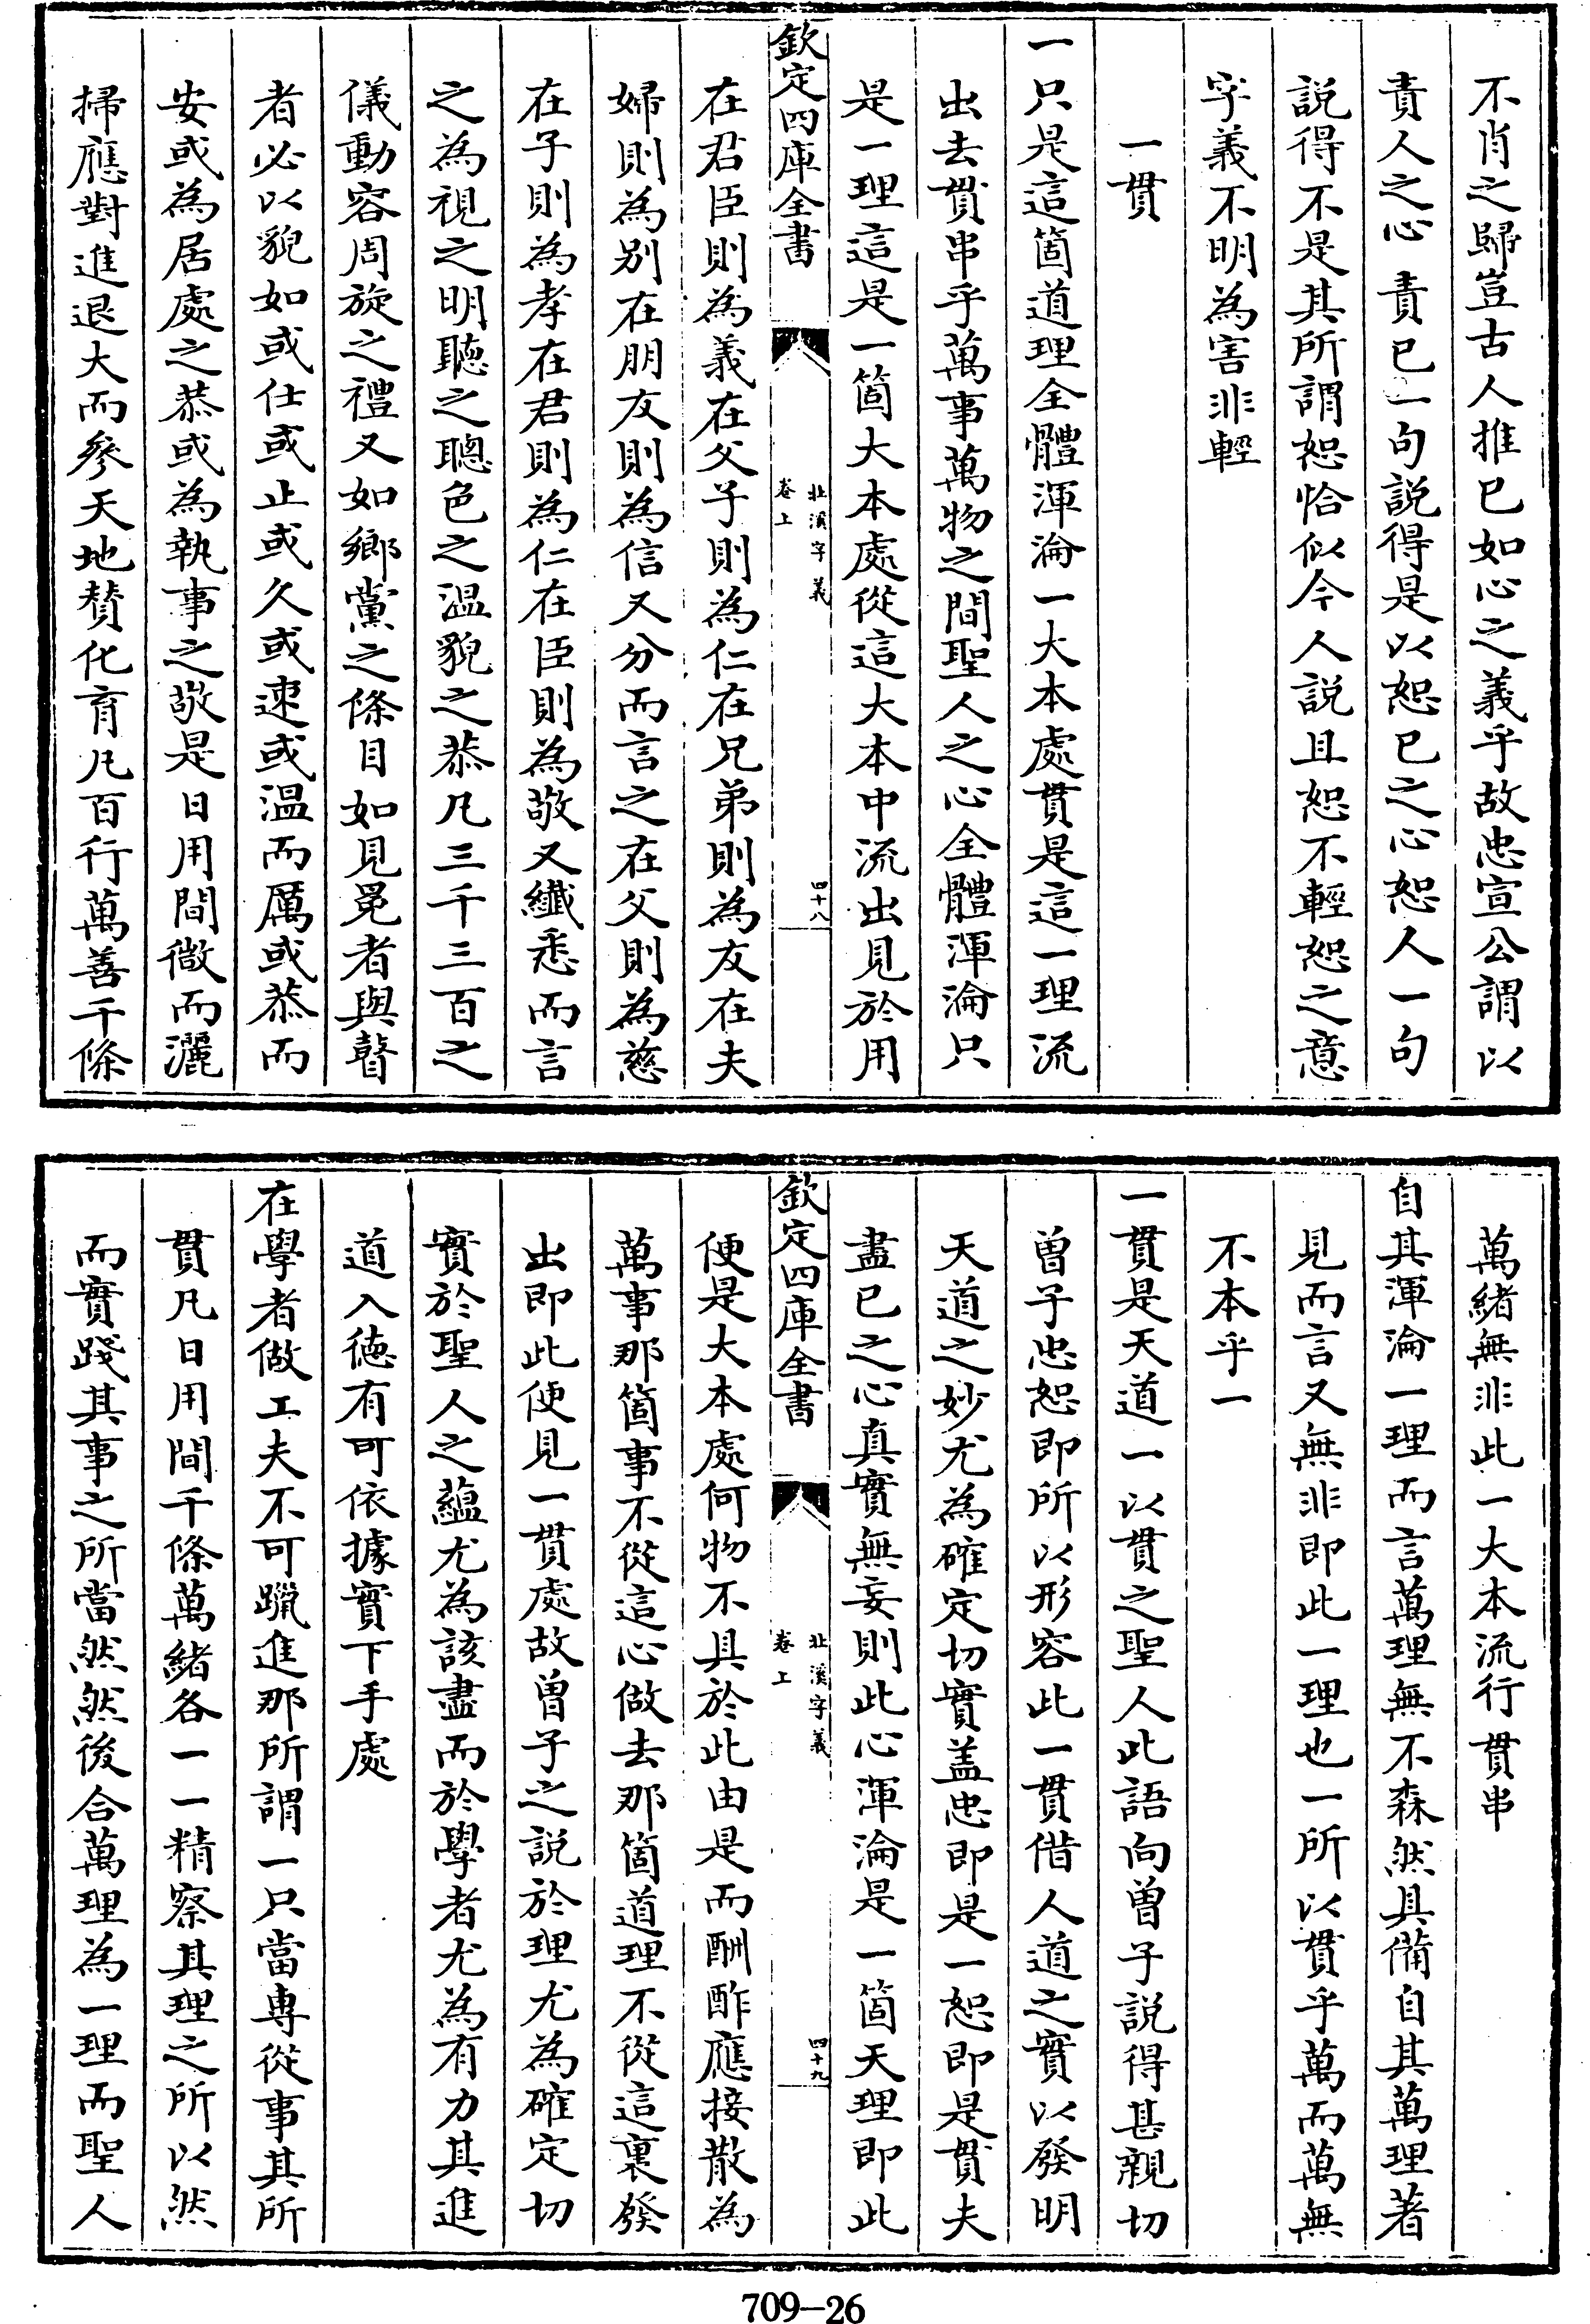 不肖之歸豈古人推已如心之義乎故忠宣公謂以
責人之心責已一句説得是以恕已之心恕人一句
説得不是其所謂恕恰似今人説且恕不輕恕之意
字義不明為害非輕
一貫
一只是這箇道理全體渾淪一大本處貫是這一理流
出去貫串乎萬事萬物之間聖人之心全體渾淪只
是一理這是一箇大本處從這大本中流出見於用
欽定四庫全書
北溪字義
卷上
四十八
在君臣則為義在父子則為仁在兄弟則為友在夫
婦則為别在朋友則為信又分而言之在父則為慈
在子則為孝在君則為仁在臣則為敬又纎悉而言
之為視之明聽之聰色之温貌之恭凡三千三百之
儀動容周旋之禮又如鄉黨之條目如見冕者與瞽
者必以貌如或仕或止或久或速或温而厲或恭而
安或為居處之恭或為執事之敬是日用間微而灑
掃應對進退大而參天地賛化育凡百行萬善千條
萬緒無非此一大本流行貫串
自其渾淪一理而言萬理無不森然具備自其萬理著
見而言又無非即此一理也一所以貫乎萬而萬無
不本乎一
一貫是天道一以貫之聖人此語向曽子説得甚親切
曽子忠恕即所以形容此一貫借人道之實以發明
天道之妙尤為確定切實盖忠即是一恕即是貫夫
盡已之心真實無妄則此心渾淪是一箇天理即此
欽定四庫全書
北溪字義
卷上
四十九
便是大本處何物不具於此由是而酬酢應接散為
萬事那箇事不從這心做去那箇道理不從這裏發
出即此便見一貫處故曽子之説於理尤為確定切
實於聖人之藴尤為該盡而於學者尤為有力其進
道入徳有可依據實下手處
在學者做工夫不可躐進那所謂一只當専從事其所
貫凡日用間千條萬緒各一一精察其理之所以然
而實踐其事之所當然然後合萬理為一理而聖人
709—26